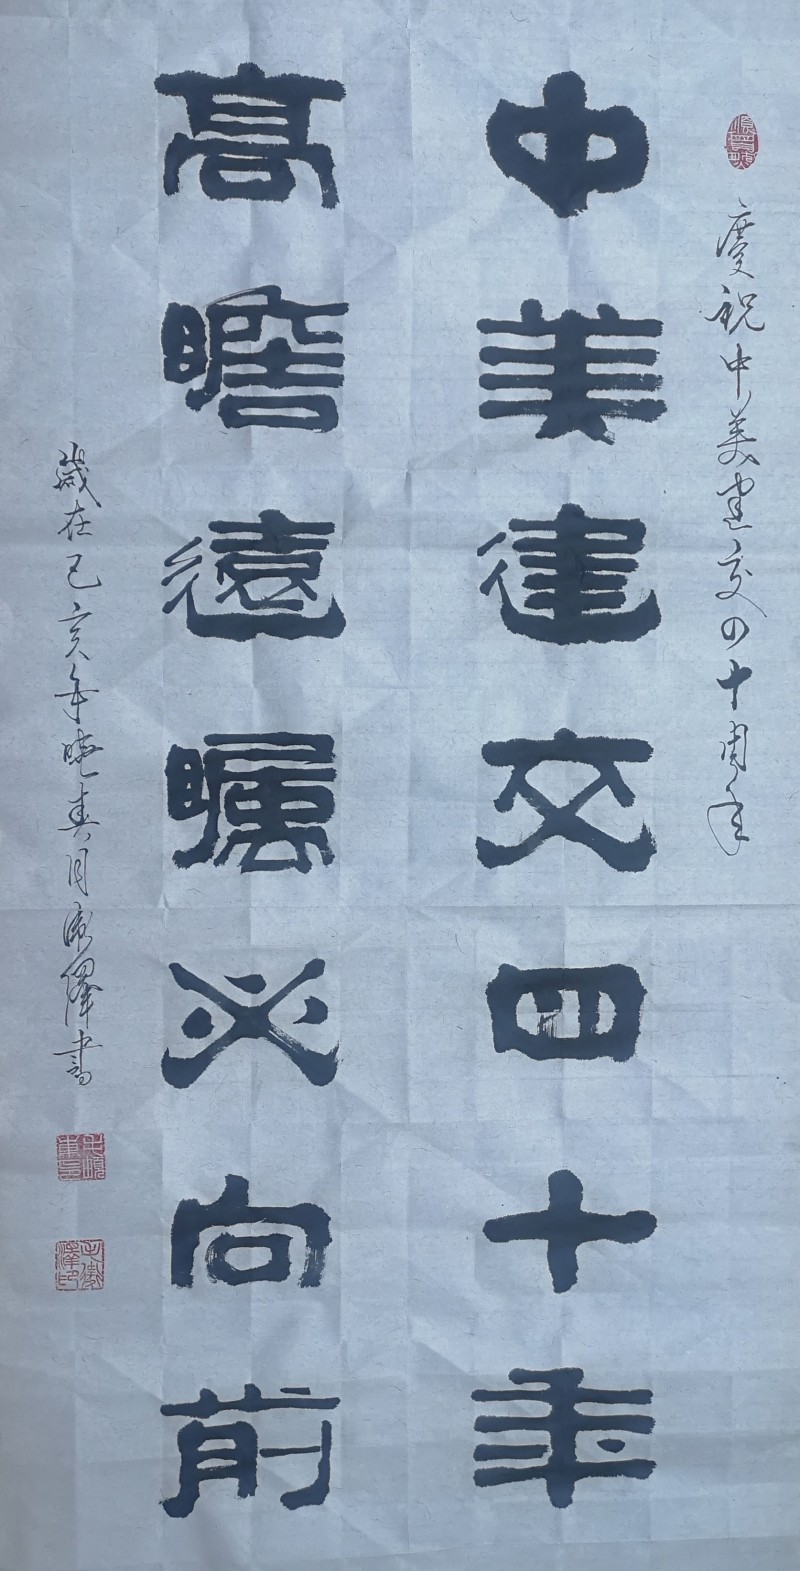 慶祝中美建交四十周年
中美建交四十年
高瞻遠矚必向前
歲在己亥年暁春月澤書